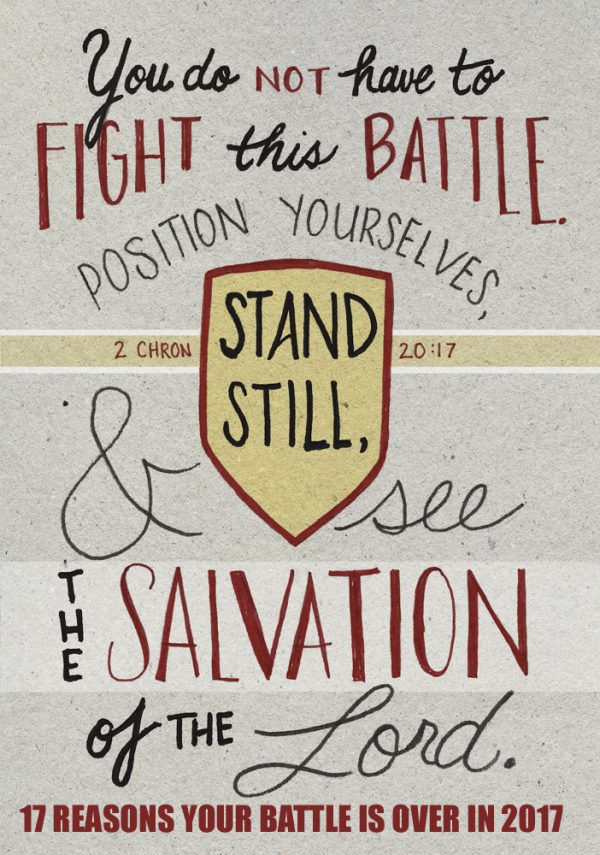 You do NOT have to
FIGHT this BATTLE.
POSITION YOURSELVES,
STAND
2 CHRON 20:17
STILL,
& see
THE SALVATION
of THE Lord.
17 REASONS YOUR BATTLE IS OVER IN 2017